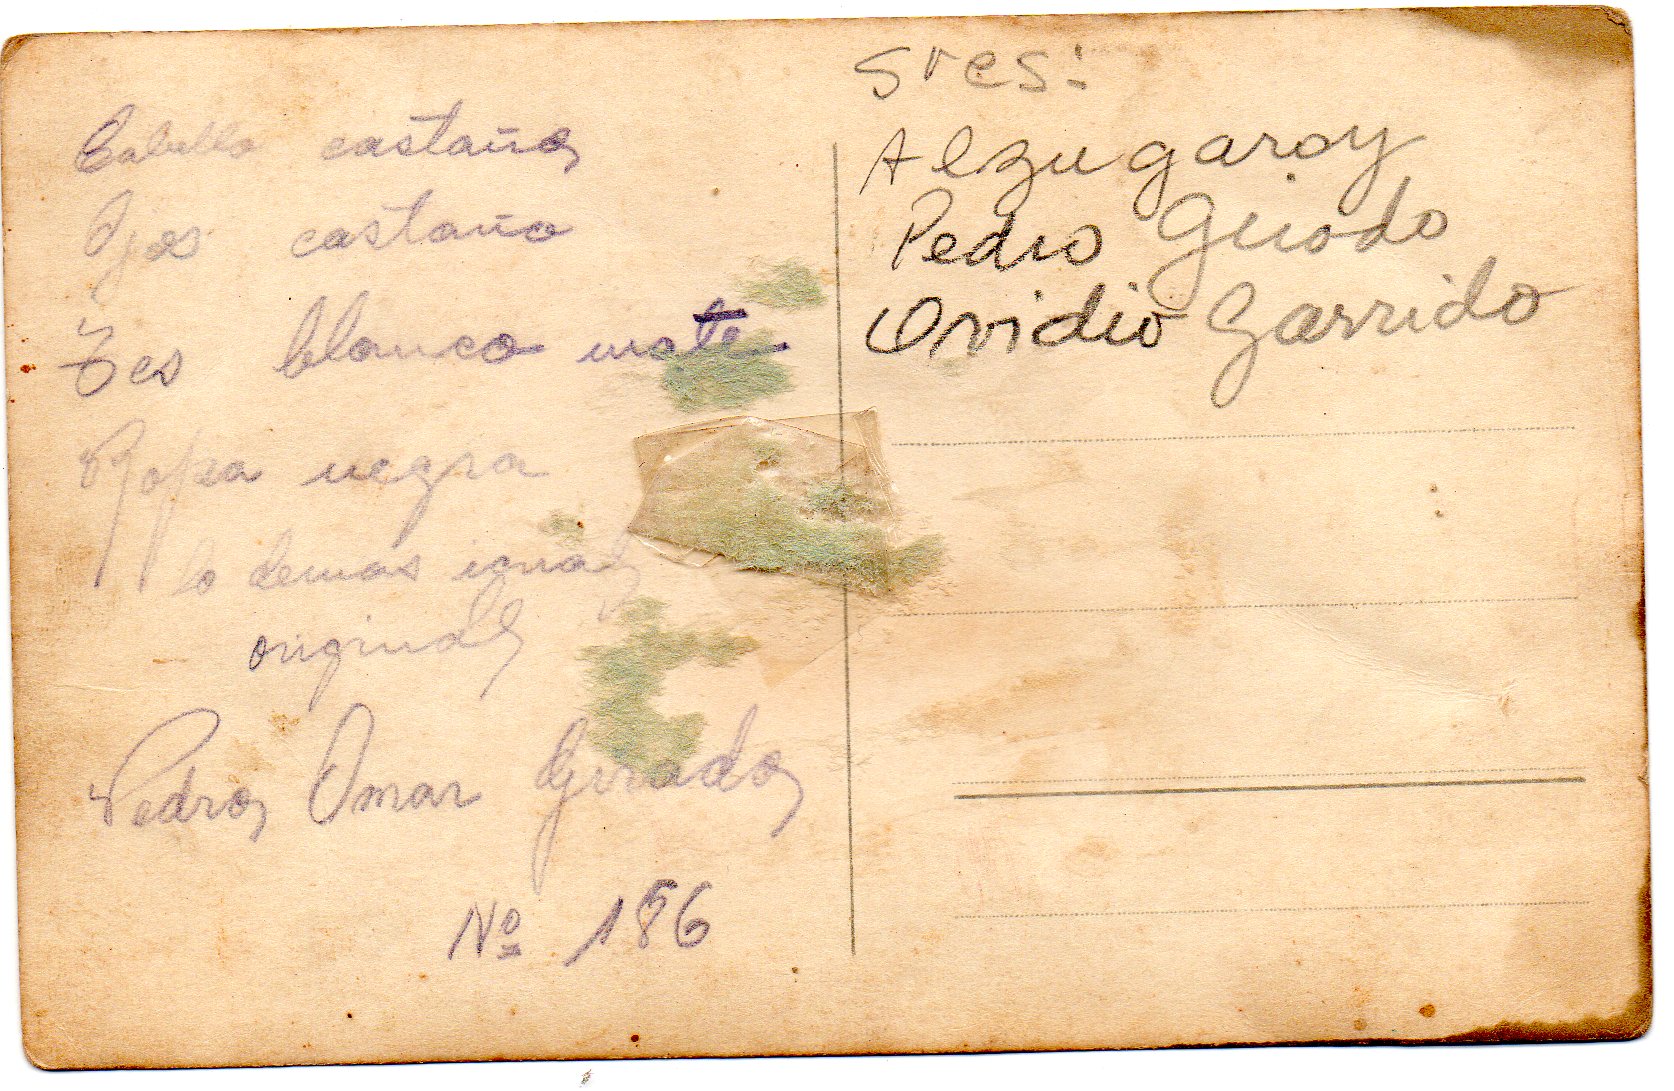 Cabello castaño
Ojos castaño
Tes blanco mate
Ropa negra
lo demas igual
original
Pedro Omar Girado
Nº 186
Sres:
Alzugaray
Pedro Girado
Ovidio Garrido